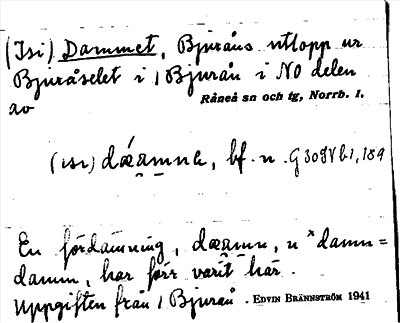 (Isi) Dammet, Bjuråns utlopp ur
Bjuråselet i 1 Bjurån i NO delen
av
Råneå sn och tg, Norrb. l.
(isi) dæamna, bf. n. G 30
En fördämning, dæamn, n *damn=
damm, har förr varit här.
Uppgiften från 1 Bjurån. EDVIN BRÄNNSTRÖM 1941